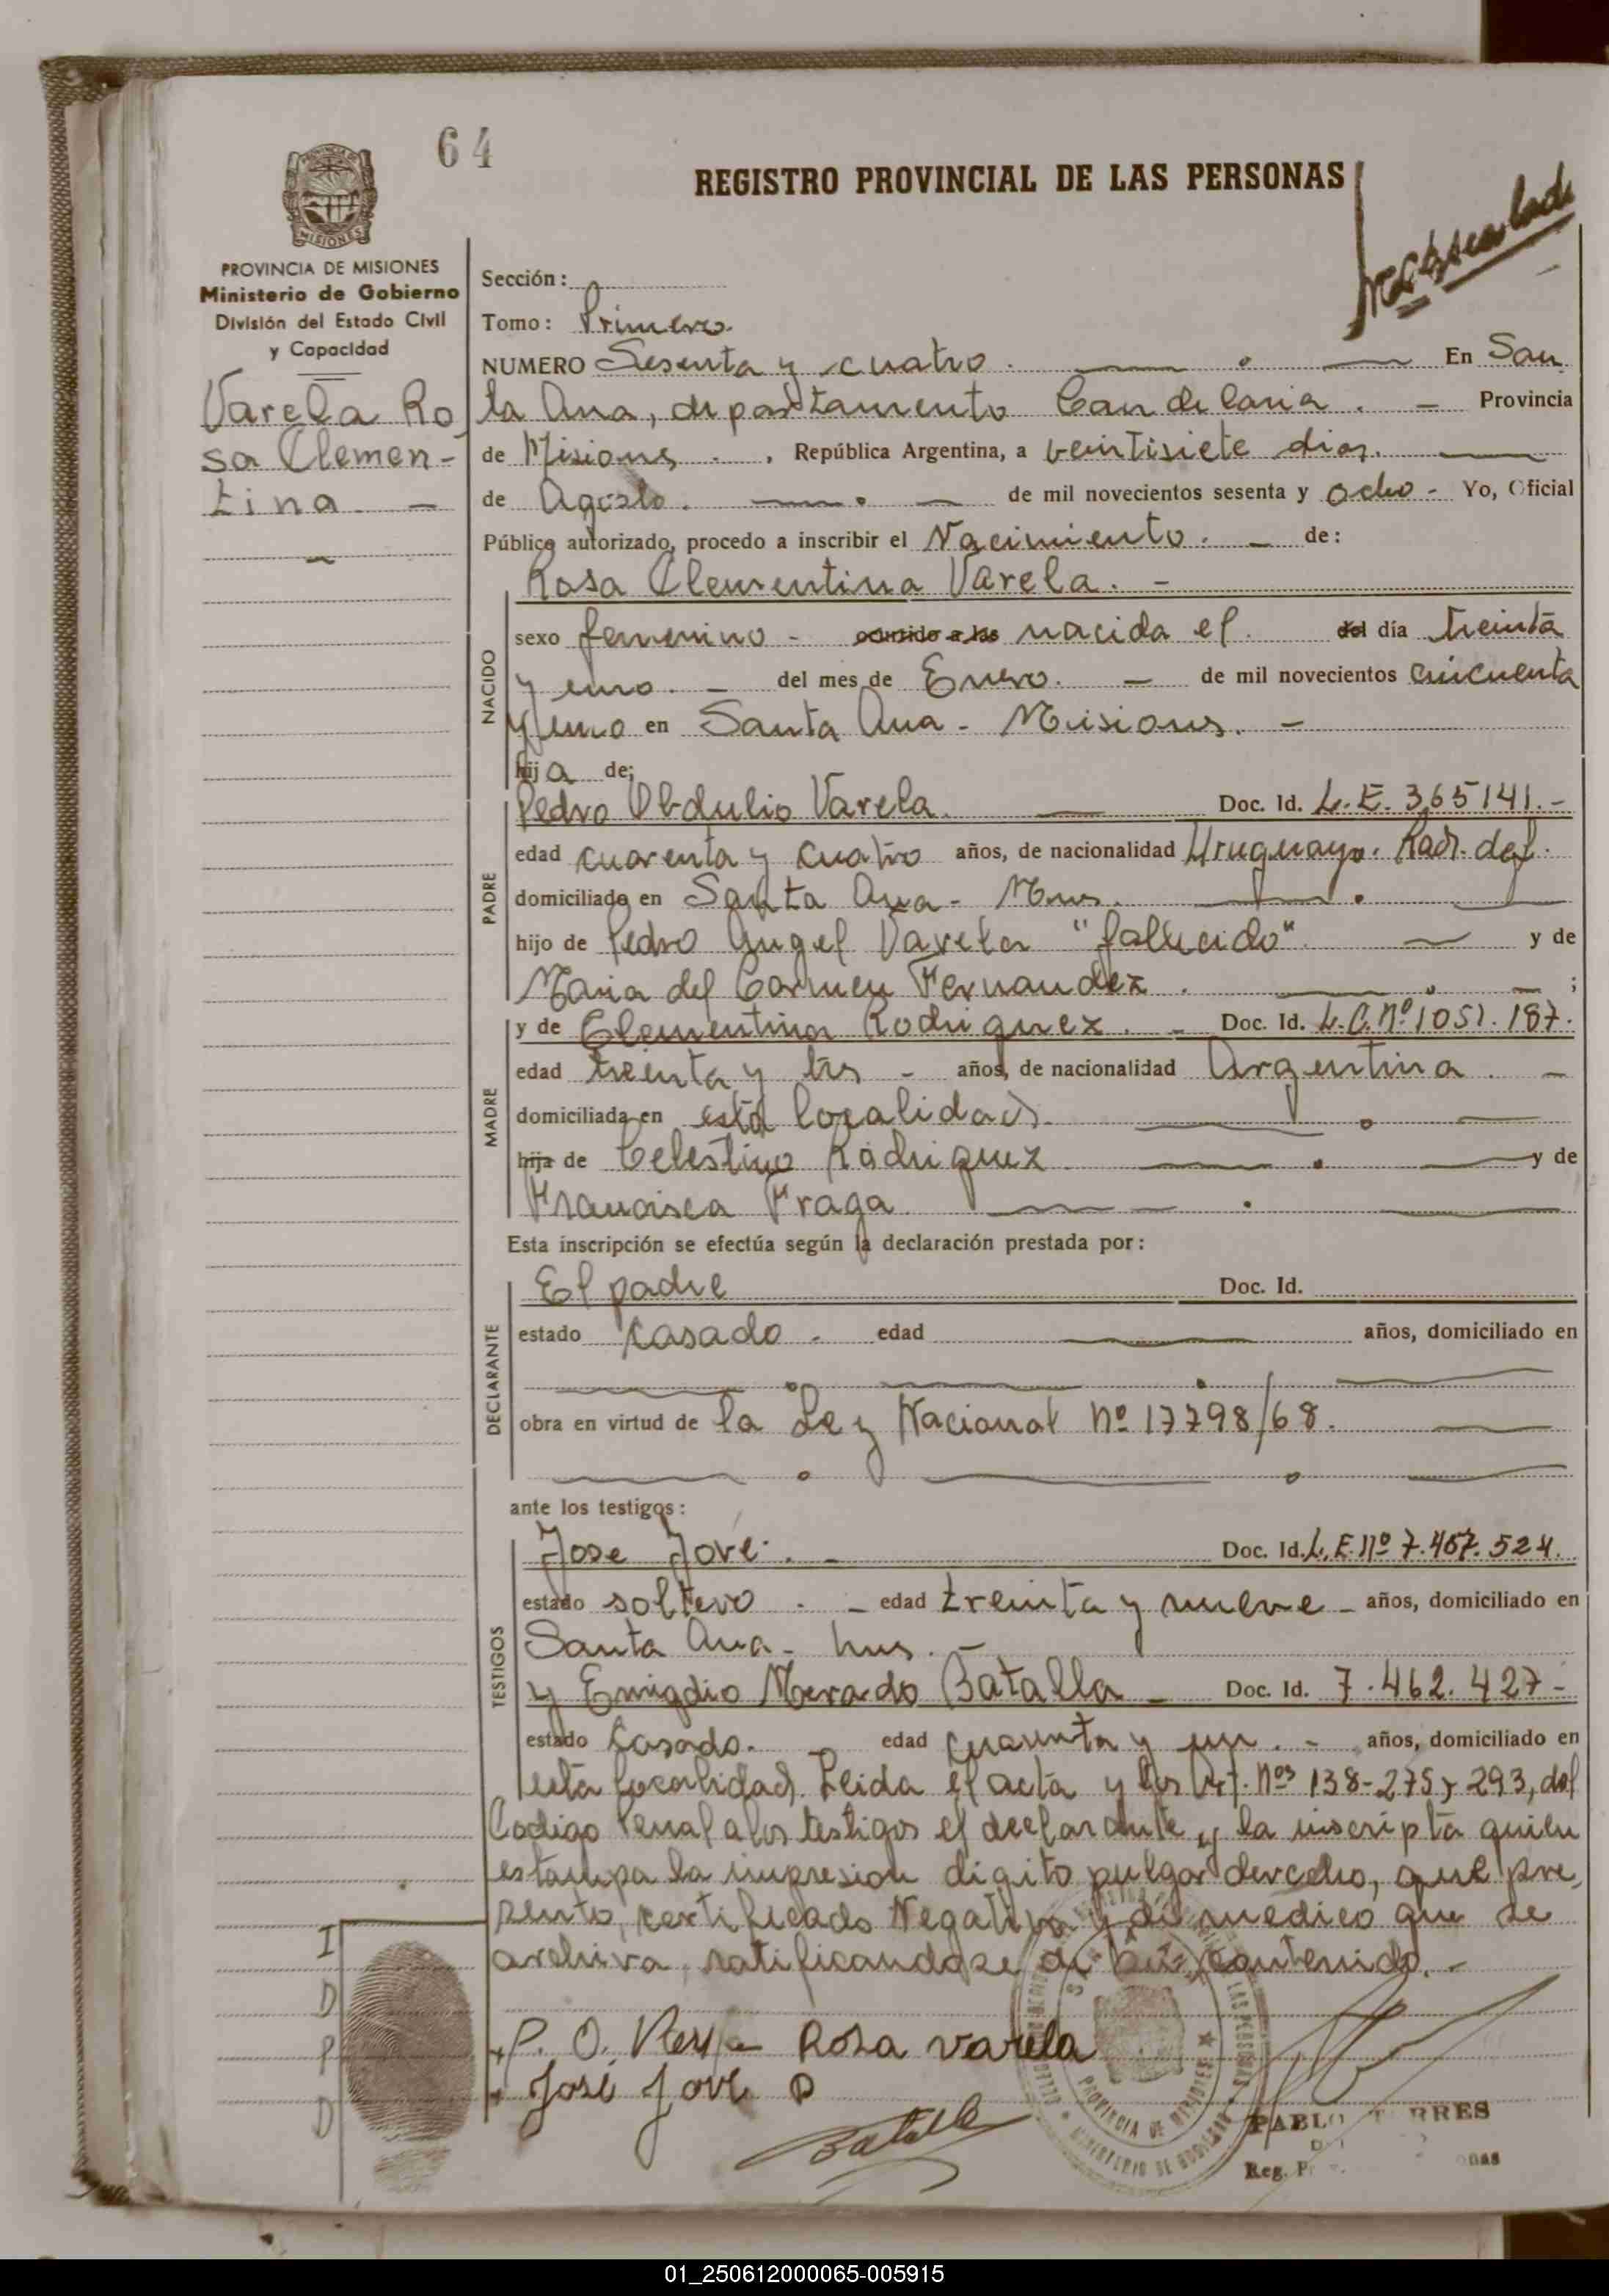 64
REGISTRO PROVINCIAL DE LAS PERSONAS
PROVINCIA DE MISIONES
Ministerio de Gobierno
División del Estado Civil
y Capacidad
Varela Ro
sa Clemen-
tina -
Sección:
Tomo: Primero.
NUMERO Sesenta y cuatro. En San
ta Ana, departamento Candelaria. - Provincia
de Misiones, República Argentina, a veintisiete dias.
de Agosto. de mil novecientos sesenta y ocho - Yo, Oficial
Público autorizado, procedo a inscribir el Nacimiento. - de:
Rosa Clementina Varela. -
NACIDO
sexo femenino - ocurrido a las nacida el del día treinta
y uno. - del mes de Enero. - de mil novecientos cincuenta
y uno en Santa Ana - Misiones. -
hija de;
PADRE
Pedro Obdulio Varela. Doc. Id. L.E. 365141.-
edad cuarenta y cuatro años, de nacionalidad Uruguayo. Rad. def.
domiciliado en Santa Ana - Mnes.
hijo de Pedro Angel Varela "fallecido". y de
Maria del Carmen Fernandez. ;
MADRE
y de Clementina Rodriguez. - Doc. Id. L.C. Nº 1051.187.
edad treinta y tres - años, de nacionalidad Argentina. -
domiciliada en esta localidad.
hija de Celestino Rodriguez y de
Francisca Fraga.
Esta inscripción se efectúa según la declaración prestada por:
DECLARANTE
El padre Doc. Id.
estado casado. edad años, domiciliado en
obra en virtud de la Ley Nacional Nº 17798/68.
ante los testigos:
TESTIGOS
Jose Jové. - Doc. Id. L.E. Nº 7.467.524.
estado soltero. - edad treinta y nueve - años, domiciliado en
Santa Ana - Mnes. -
y Emigdio Batalla - Doc. Id. 7.462.427-
estado casado. edad cuarenta y un. - años, domiciliado en
esta localidad. Leida el acta y los Art. Nos 138-275 y 293, del
Codigo Penal a los testigos el declarante y la inscripta quien
estampa la impresion digito pulgar derecho, que pre
sento, certificado Negativo y de medico que se
archiva, ratificandose de su contenido. -
I
D
P
D
P. O. Rosa Varela
José Jové
Batalla
PROVINCIA DE MISIONES
MINISTERIO DE GOBIERNO
PABLO TORRES
Reg. P
01_250612000065-005915